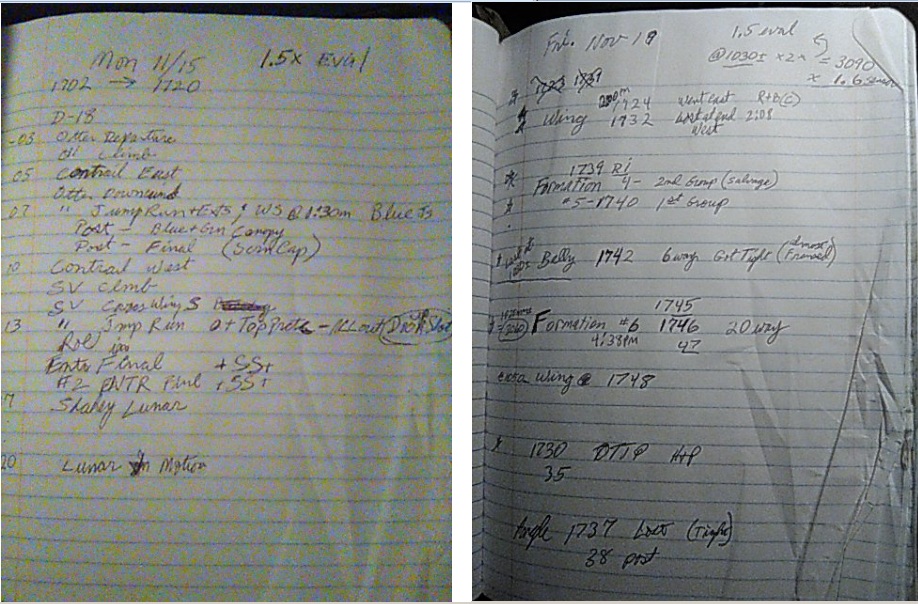 Mon 11/15 1.5x Eval
1702 → 1720
D-18
-03 Otter Departure
on Climb
05 Contrail East
Otter Downwind
07 " JumpRun+Exts, WS @ 1:30m Blue Js
Post - Blue+Grn Canopy
Post - Final (ScrnCap)
10 Contrail West
SV Climb
SV Wing S
13 " Jmp Run - All out
Rol in
Entr Final + SS+
#2 ENTR Finl + SS+
Shakey Lunar
20 Lunar In Motion
Fri. Nov 19 1.5 eval
@1030s x2x = 3090
x 1.6
Wing 1724 Went east R+B (C)
1732 Lost at end 2:08
West
1739
Formation 4 - 2nd Group (Salvage)
#5-1740 1st Group
Belly 1742 6 way Got Tight (almost Framed)
1745
Formation #6 1746 20 way
4:38pm 47
extra Wing @ 1748
1730 H+P
35
Angle 1737 Lost (Tight)
38 post